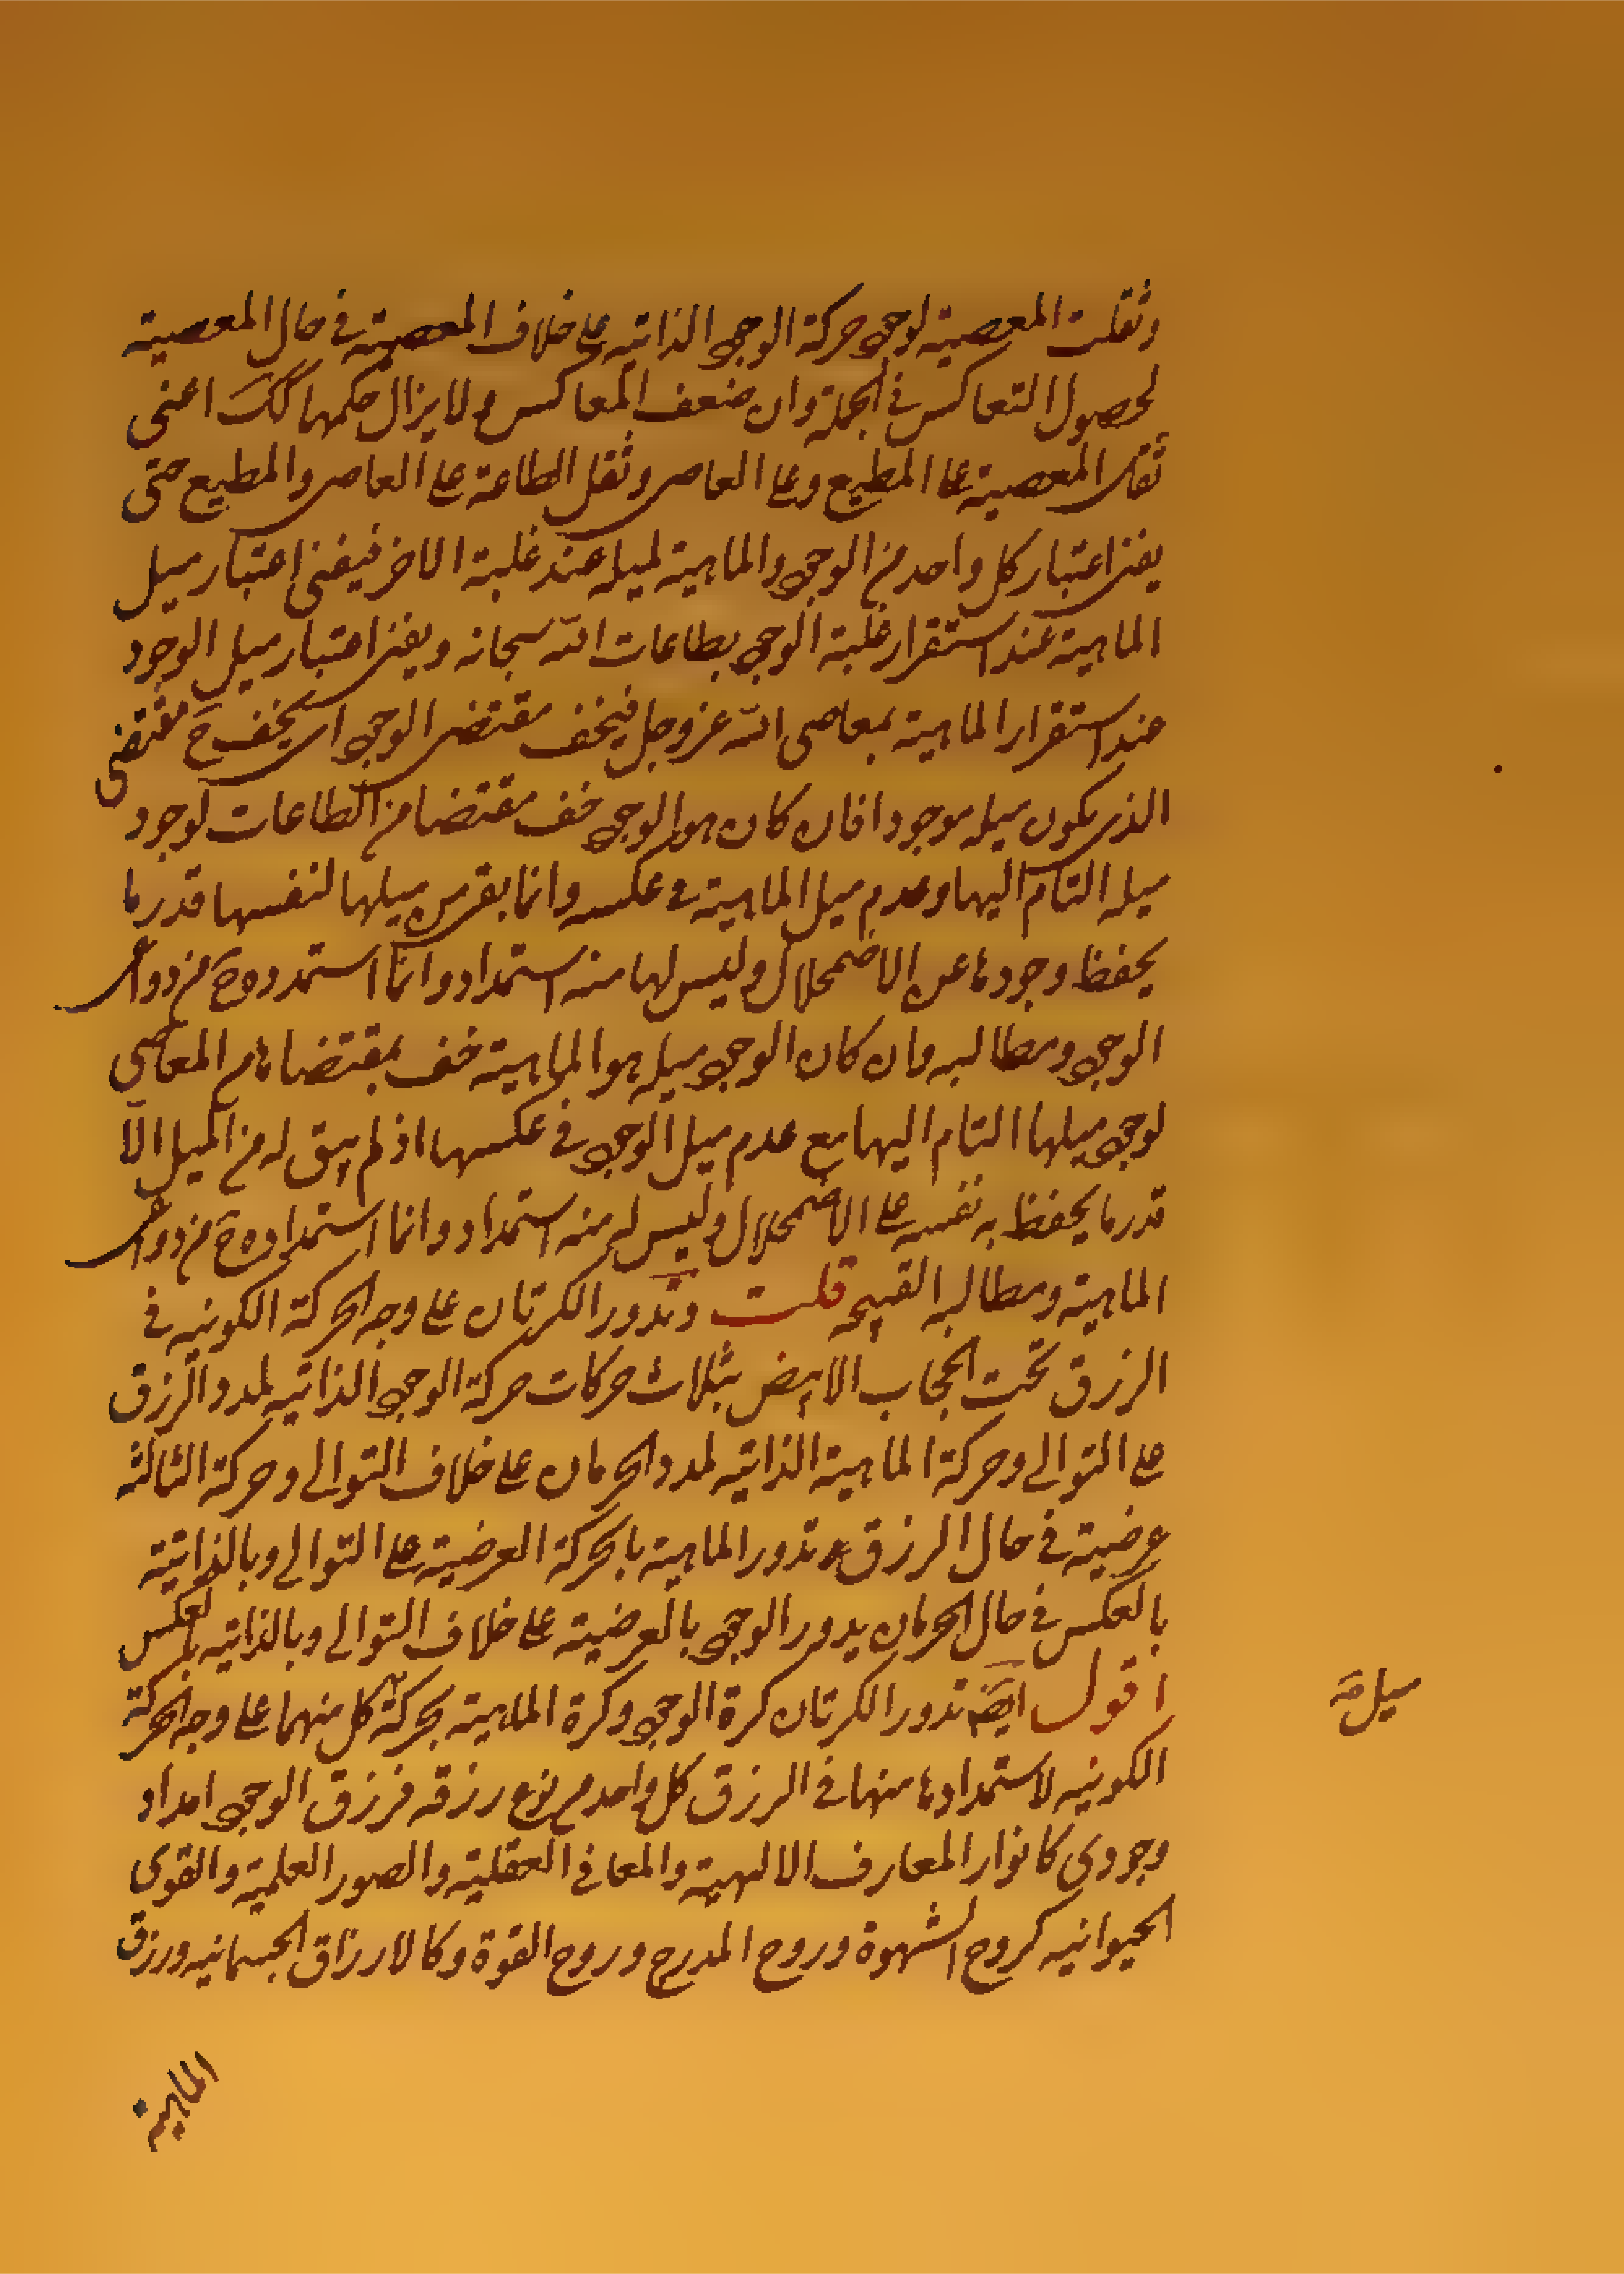 وثقلت المعصية لوجو حركة الوجو الذاتيه على خلاف المعصية في حال المعصية
لحصول التعاكس في الجملة وان ضعف المعاكس ولا يزال حكمها كك اعني
ثقل المعصية على المطيع وعلى العاصى وثقل الطاعة على العاصى والمطيع حتى
يفنى اعتبار كل واحد من الوجو والماهية لميله عند غلبة الاخر فيفنى اعتبار ميل
الماهية عند استقرار غلبة الوجو بطاعات الله سبحانه ويفنى اعتبار ميل الوجود
عند استقرار الماهية بمعاصى الله عز وجل فيخف مقتضى الوجو اى يخف ح مقتضى
الذى يكون ميله موجودا فان كان هو الوجو خف مقتضا من الطاعات لوجود
ميله التام اليها وعدم ميل الماهية فى عكسه وانما بقى من ميلها لنفسها قدر ما
يحفظ وجودها عن الاضمحلال وليس لها منه استمداد وانما استمدد من دواعى
الوجو ومطالبه وان كان الوجو ميله هو الماهية خف بمقتضاها من المعاصى
لوجو ميلها التام اليها مع عدم ميل الوجو في عكسها اذ لم يبق له من الميل الا
قدر ما يحفظ به نفسه على الاضمحلال وليس له منه استمداد وانما استمداده ح من دواعى
الماهية ومطالبه القبيحه قلت وتدور الكرتان على وجه الحركة الكونيه في
الرزق تحت الحجاب الابيض بثلاث حركات حركة الوجو الذاتيه لمدد الرزق
على التوالى وحركة الماهية الذاتيه لمدد الحرمان على خلاف التوالى وحركة الثالثة
عرضية في حال الرزق تدور الماهية بالحركة العرضية على التوالى وبالذاتية
بالعكس في حال الحرمان يدور الوجو بالعرضية على خلاف التوالى وبالذاتيه بالعكس
اقول ايضا تدور الكرتان كرة الوجو وكرة الماهية بحركة كل منهما على وجه الحركة
الكونيه لاستمدادها منها في الرزق كل واحد من نوع رزقه فرزق الوجو امداد
وجودى كانوار المعارف الالهية والمعانى العقلية والصور العلمية والقوى
الحيوانيه كروح الشهوة وروح المدرج وروح القوة وكالارزاق الجسمانيه ورزق
الماهية